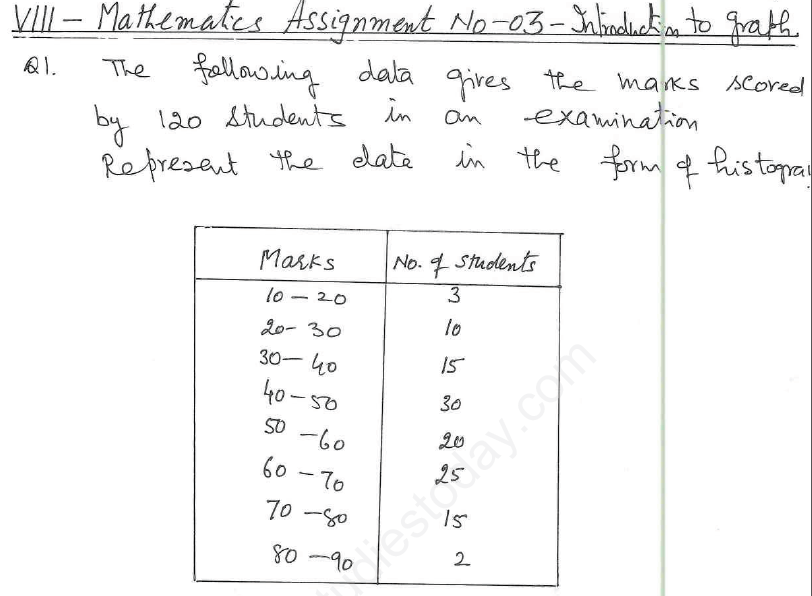 VIII - Mathematics Assignment No-03 - Introduction to graph
Q1. The following data gives the marks scored
by 120 students in an examination
Represent the data in the form of histogra
Marks No. of students
10 - 20 3
20- 30 10
30- 40 15
40 - 50 30
50 - 60 20
60 - 70 25
70 - 80 15
80 - 90 2
udiestoday.com